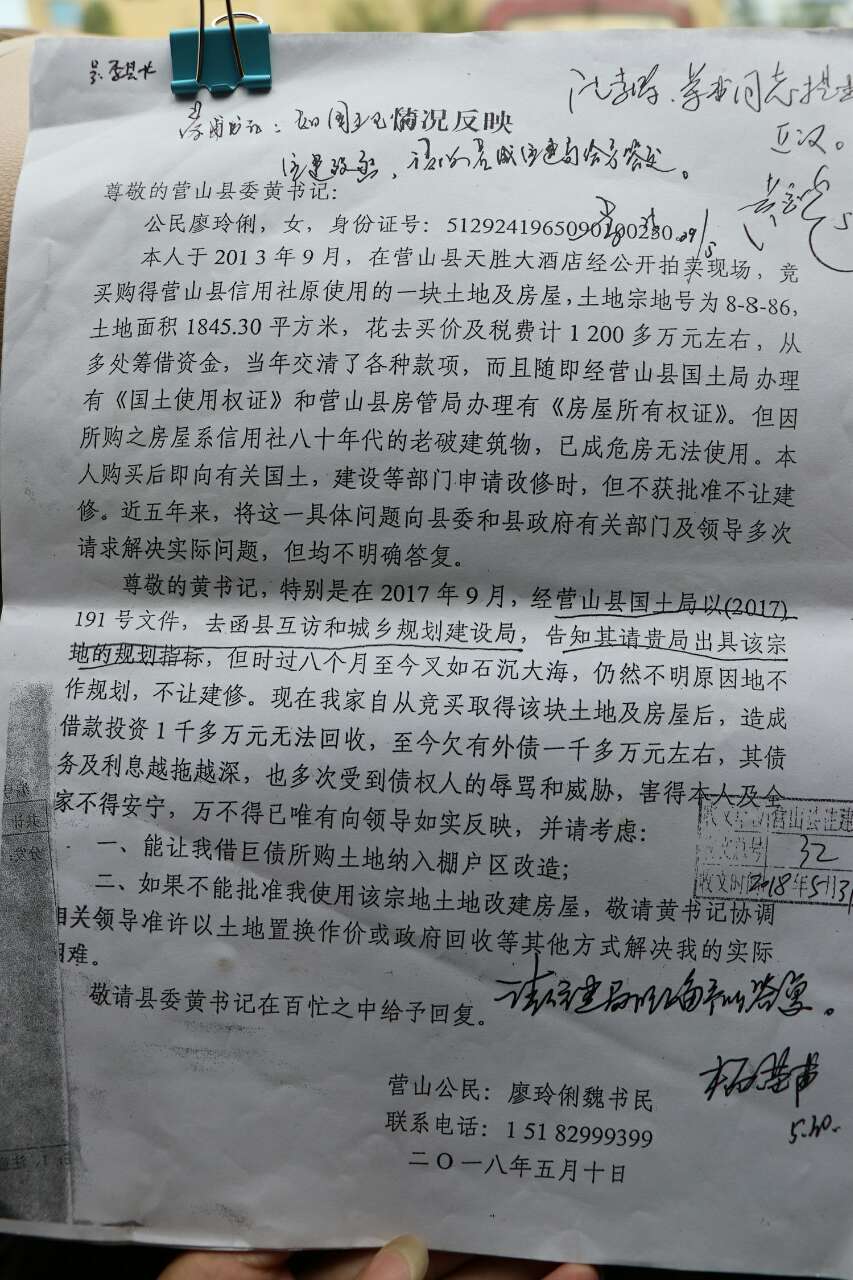 情况反映
尊敬的营山县委黄书记：
公民廖玲俐，女，身份证号：
本人于2013年9月，在营山县天胜大酒店经公开拍卖现场，竞
买购得营山县信用社原使用的一块土地及房屋，土地宗地号为8-8-86，
土地面积1845.30平方米，花去买价及税费计1200多万元左右，从
多处筹借资金，当年交清了各种款项，而且随即经营山县国土局办理
有《国土使用权证》和营山县房管局办理有《房屋所有权证》。但因
所购之房屋系信用社八十年代的老破建筑物，已成危房无法使用。本
人购买后即向有关国土，建设等部门申请改修时，但不获批准不让建
修。近五年来，将这一具体问题向县委和县政府有关部门及领导多次
请求解决实际问题，但均不明确答复。
尊敬的黄书记，特别是在2017年9月，经营山县国土局以(2017)
191号文件，去函县互访和城乡规划建设局，告知其请贵局出具该宗
地的规划指标，但时过八个月至今叉如石沉大海，仍然不明原因地不
作规划，不让建修。现在我家自从竞买取得该块土地及房屋后，造成
借款投资1千多万元无法回收，至今欠有外债一千多万元左右，其债
务及利息越拖越深，也多次受到债权人的辱骂和威胁，害得本人及全
家不得安宁，万不得已唯有向领导如实反映，并请考虑：
一、能让我借巨债所购土地纳入棚户区改造；
二、如果不能批准我使用该宗地土地改建房屋，敬请黄书记协调
相关领导准许以土地置换作价或政府回收等其他方式解决我的实际
困难。
敬请县委黄书记在百忙之中给予回复。
营山公民：廖玲俐魏书民
联系电话：15182999399
二〇一八年五月十日
营山县住建
32
收文时间2018年5月31
5.30.